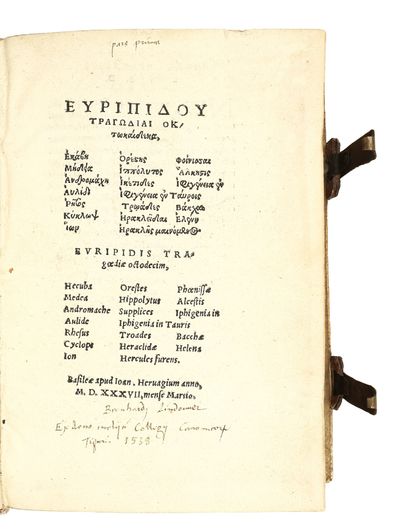 pars prima
ΕΥΡΙΠΙΔΟΥ
ΤΡΑΓΩΔΙΑΙ ΟΚ-
τωκαίδεκα,
Ἑκάβη Ὀρέστης Φοίνισσαι
Μήδεια Ἱππόλυτος Ἄλκηστις
Ἀνδρομάχη Ἱκέτιδες Ἰφιγένεια ἡ ἐν
Αὐλίδι Ἰφιγένεια ἡ ἐν Ταύροις
Ῥῆσος Τρωάδες Βάκχαι
Κύκλωψ Ἡρακλεῖδαι Ἑλένη
Ἴων Ἡρακλῆς μαινόμενος
EVRIPIDIS TRA-
gœdiæ octodecim,
Hecuba Orestes Phœnissæ
Medea Hippolytus Alcestis
Andromache Supplices Iphigenia in
Aulide Iphigenia in Tauris
Rhesus Troades Bacchæ
Cyclops Heraclidæ Helena
Ion Hercules furens.
Basileæ apud Ioan. Heruagium anno,
M. D. XXXVII, mense Martio.
Bernhardj Lindauer
Ex dono Collegij
Tiguri 1538